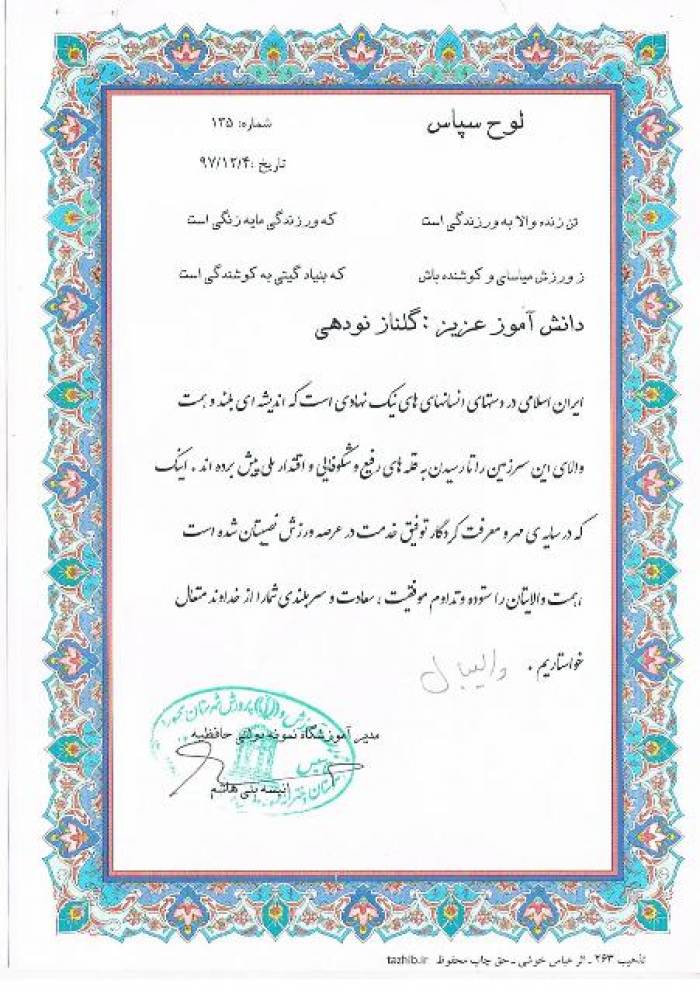 لوح سپاس
شماره: ۱۳۵
تاریخ :۹۷/۱۲/۴
تن زنده والا به ورزندگی است که ورزندگی مایه زنگی است
ز ورزش میاسای و کوشنده باش که بنیاد گیتی به کوشندگی است
دانش آموز عزیز :گلناز نودهی
ایران اسلامی در دستهای انسانهای های نیک نهادی است که اندیشه ای بلند و همت
والای این سرزمین را تا رسیدن به قله های رفیع و شکوفایی و اقتدار ملی پیش برده اند . اینک
که در سایه ی مهر و معرفت کردگار توفیق خدمت در عرصه ورزش نصیبتان شده است
،همت والایتان را ستوده و تداوم موفقیت ، سعادت و سربلندی شما را از خداوند متعال
خواستاریم .
والیبال
مدیر آموزشگاه نمونه دولتی حافظیه
انیسه بنی هاشم
تذهیب ۲۶۳ - اثر عباس خوشی - حق چاپ محفوظ tazhib.ir